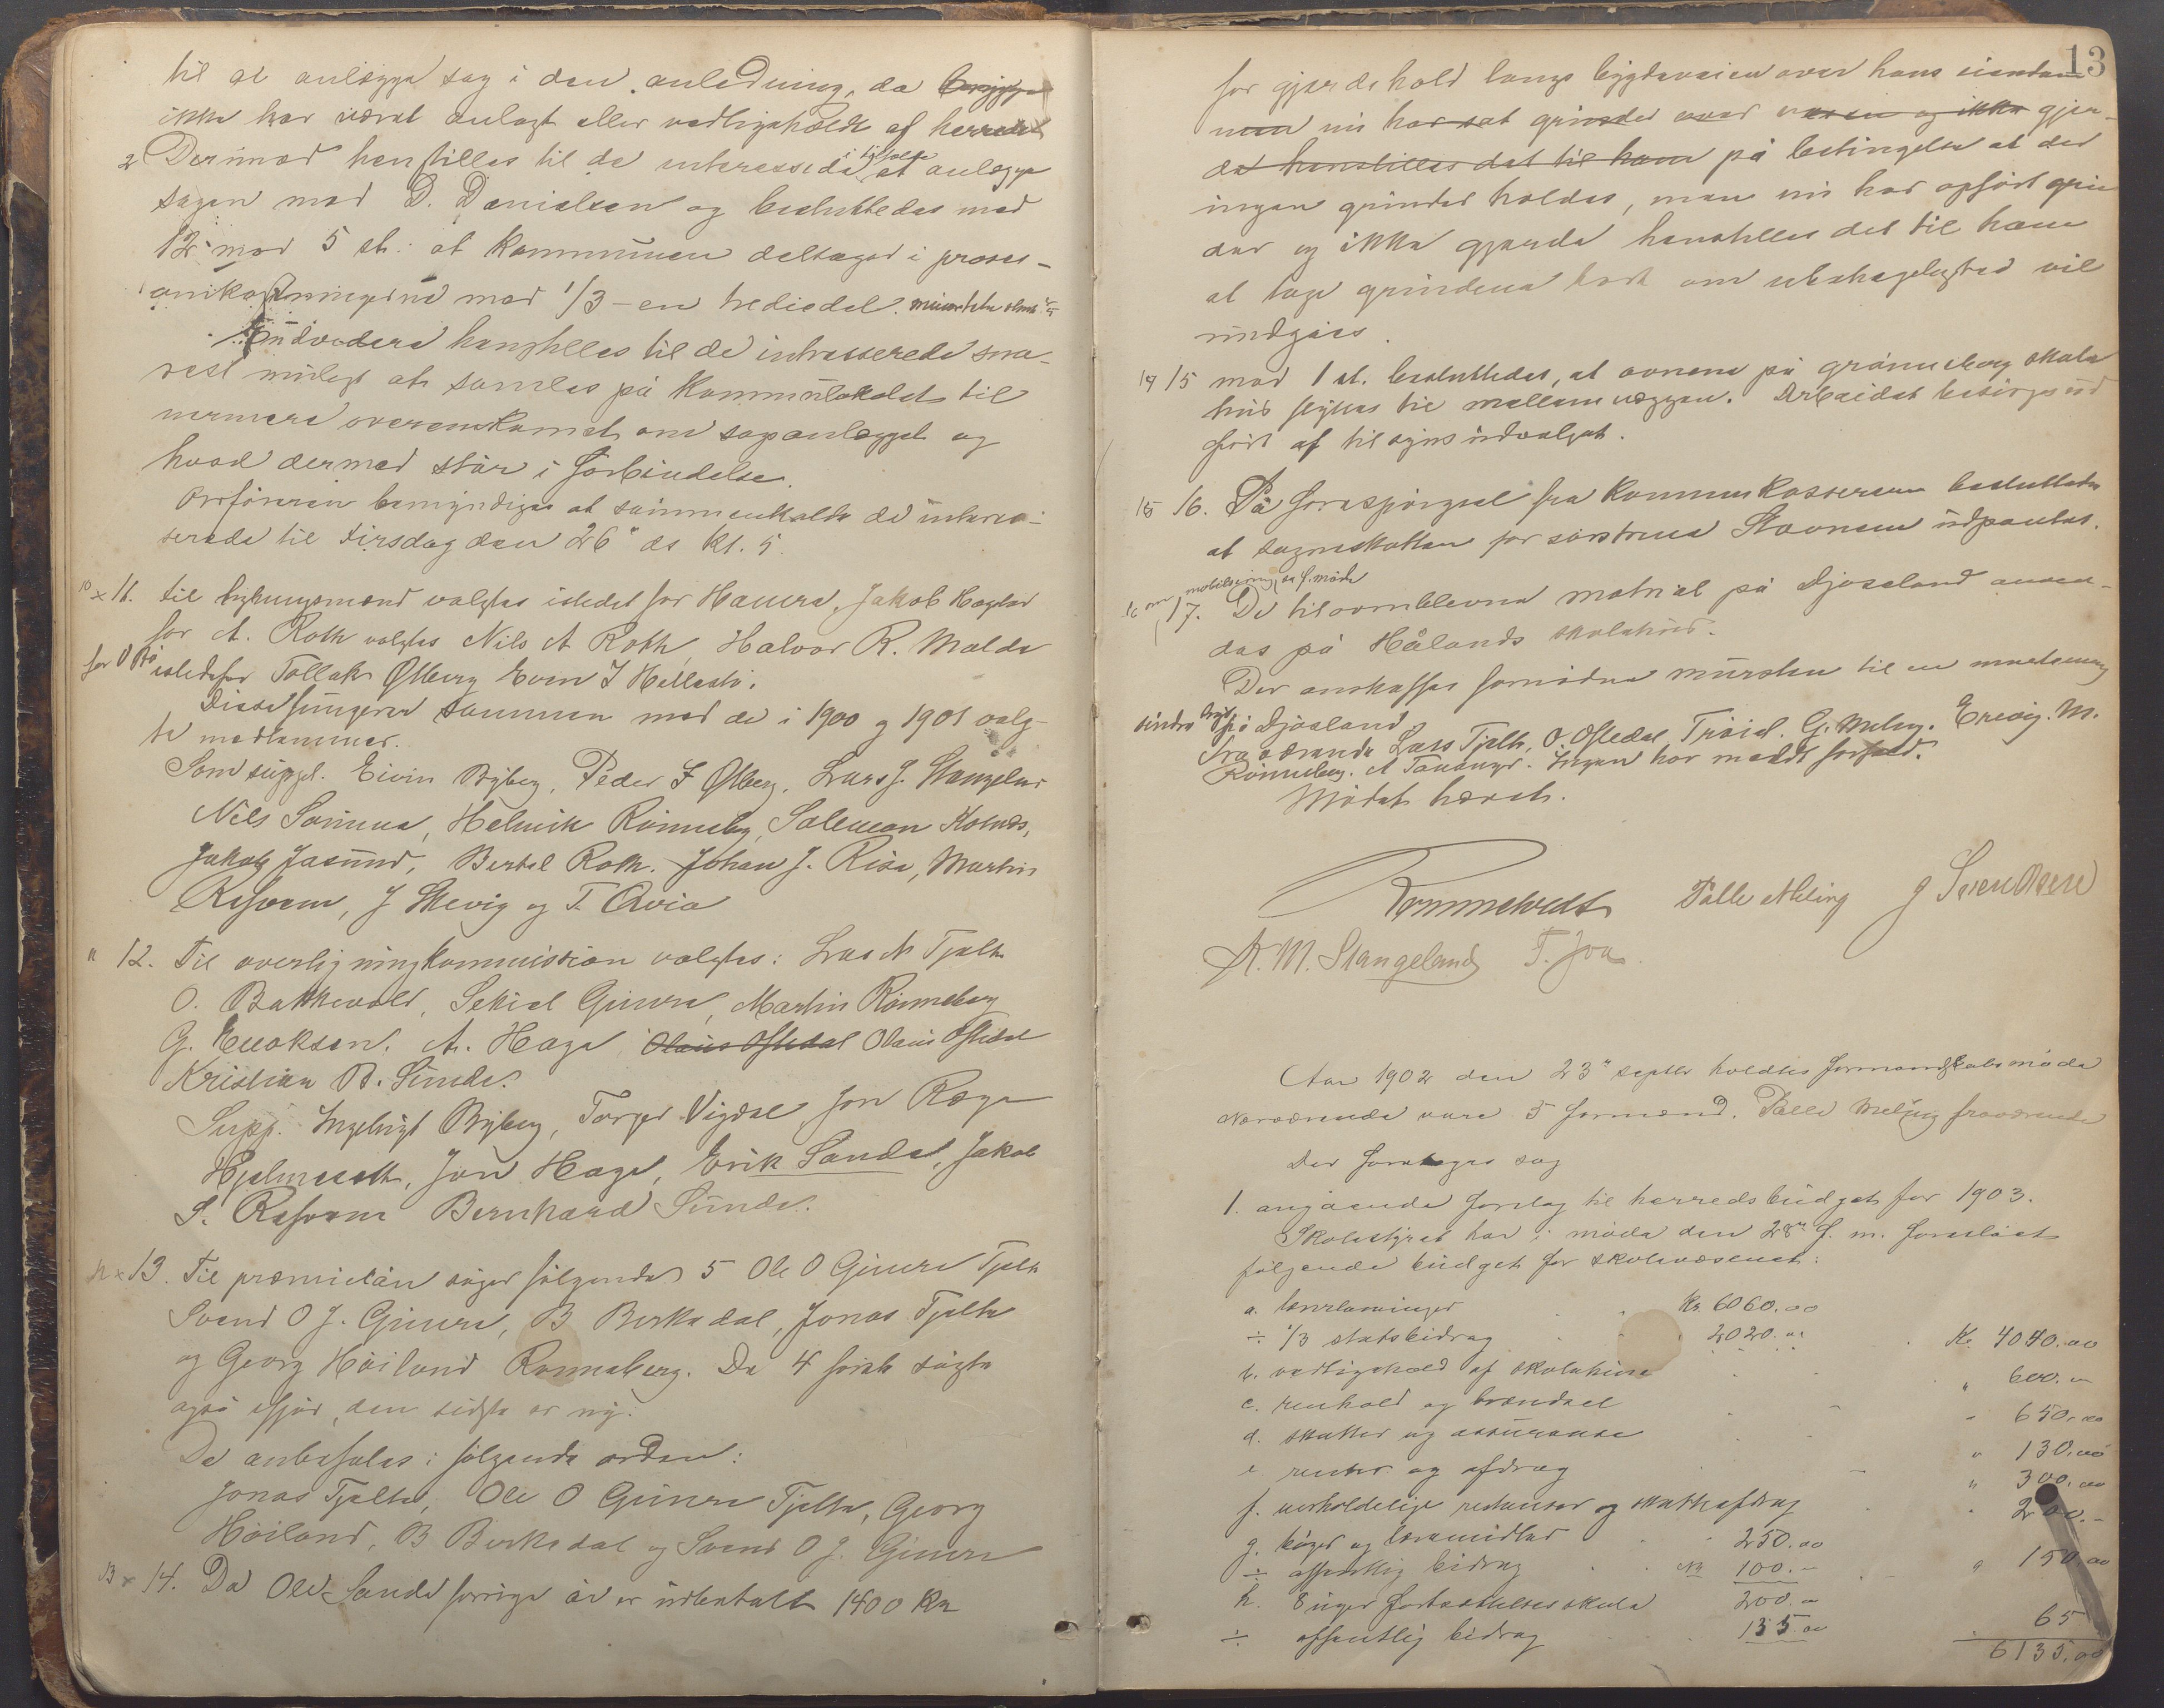 til at anlægge sag i den anledning, da
ikke har været anlagt eller vedligeholdt af herredet
2 Derimod henstilles til de interesserede i tilfælde at anlægge
sagen mod D. Danielsen og besluttedes med
12 mod 5 st: at kommunen deltager i proces-
omkostningerne med 1/3 - en trediedel.
henstilles til de intresserede sna-
rest muligt at samles på kommunelokalet til
nermere overenskomst om saganlægget og
hvad dermed står i forbindelse.
Ordføreren bemyndiges at sammenkalde de interes-
serede til tirsdag den 26" ds kl. 5
10 x 11. Til bygningsmænd valgtes istedet for Haura, Jakob Haglad
for A. Roth valgtes Nils A Roth, Halvor R. Malde
istedetfor Tollak Østberg Even I Hellestø.
Disse fungerer sammen med de i 1900 og 1901 valg-
te medlemmer.
Som suppl. Eivin Byberg, Peder I Østberg, Lars J. Stangeland
Nils Sømme, Helmik Rønneberg, Salemon Kolnes,
Jakob Jåsund, Bertel Roth. Johan J. Risa, Martin
Refsvem, J Skevig og T. Qvia
11 12. Til overligningskommission valgtes: Lars M Tjelta
O. Bakkevold, Sekiel Gimre, Martin Rønneberg
G. Meraksen. A. Haga, Olaus Oftedal Olaus Oftedal
Kristian B. Sunde.
Supp. Ingebrigt Byberg, Torger Vigdel Jon Ræge
Hjelmesett, Jon Haga, Erik Sandal, Jakob
S. Refsvem Bernhard Sunde.
12 x 13. Til præmielån søger følgende 5 Ole O Gimre Tjelta
Svend O J. Gimre, B Berkedal, Jonas Tjelta
og Georg Høiland Rønneberg. De 4 første søgte
også ifjor, den sidste er ny.
De anbefales i følgende orden:
Jonas Tjelta, Ole O Gimre Tjelta, Georg
Høiland, B Berkedal og Svend O J. Gimre
13 x 14. Da Ole Sande forrige år er udbetalt 1400 Kr
13
for gjærdehold langs bygdeveien over hans eiendom
men vis har sat grinder over veien og ikke gjer-
det henstilles det til ham på betingelse at der
ingen grinder holdes, men vis har opført grin
der og ikke gjerde henstilles det til ham
at tage grinderne bort om ubehageligheder vil
undgåes.
14 15 mod 1 st. besluttedes, at ovnene på Grønneberg skole
hus flyttes til mellemveggen. Arbeidet besørges ud
ført af tilsynsudvalget.
15 16. På forespørgsel fra kommunekassereren besluttedes
at sogneskatten for søstrene Stornem udpantes.
16 17. De tiloversblevne matrial på Djøseland anven-
des på Hålands skolehus.
Der anskaffes fornødne mursten til en
på Djøsland
Fraværende Lars Tjelta, O. Oftedal, G. Meling. Erevig. M.
Rønneberg. A Tananger. Ingen har meldt forfald.
Mødet hævet.
Tommelvedt Palle Meling J Svendsen
A. M. Stangeland T. Joa
Aar 1902 den 23" septbr holdtes formandskabsmøde
Nærværende vare 5 formænd. Palle Meling fraværende
Der foretoges sag
1. angående forslag til herredsbudget for 1903.
Skolestyret har i møde den 28" f. m. foreslået
følgende budget for skolevæsenet:
a. lærerlønninger Kr. 6060.00
÷ 1/3 statsbidrag " 2020.00 Kr. 4040.00
b. vedligehold af skolehuse " 600.-
c. renhold og brændsel " 650.00
d. skatter og assurance " 130.00
e renter og afdrag " 300.00
f. uerholdelige restanser og skatteafdrag " 200.-
g. bøger og læremidler 250.00
÷ offentlig bidrag 100.- " 150.00
h. 8 uger fortsættelsesskole 200.-
÷ offentlig bidrag 135.00 65
6135.00